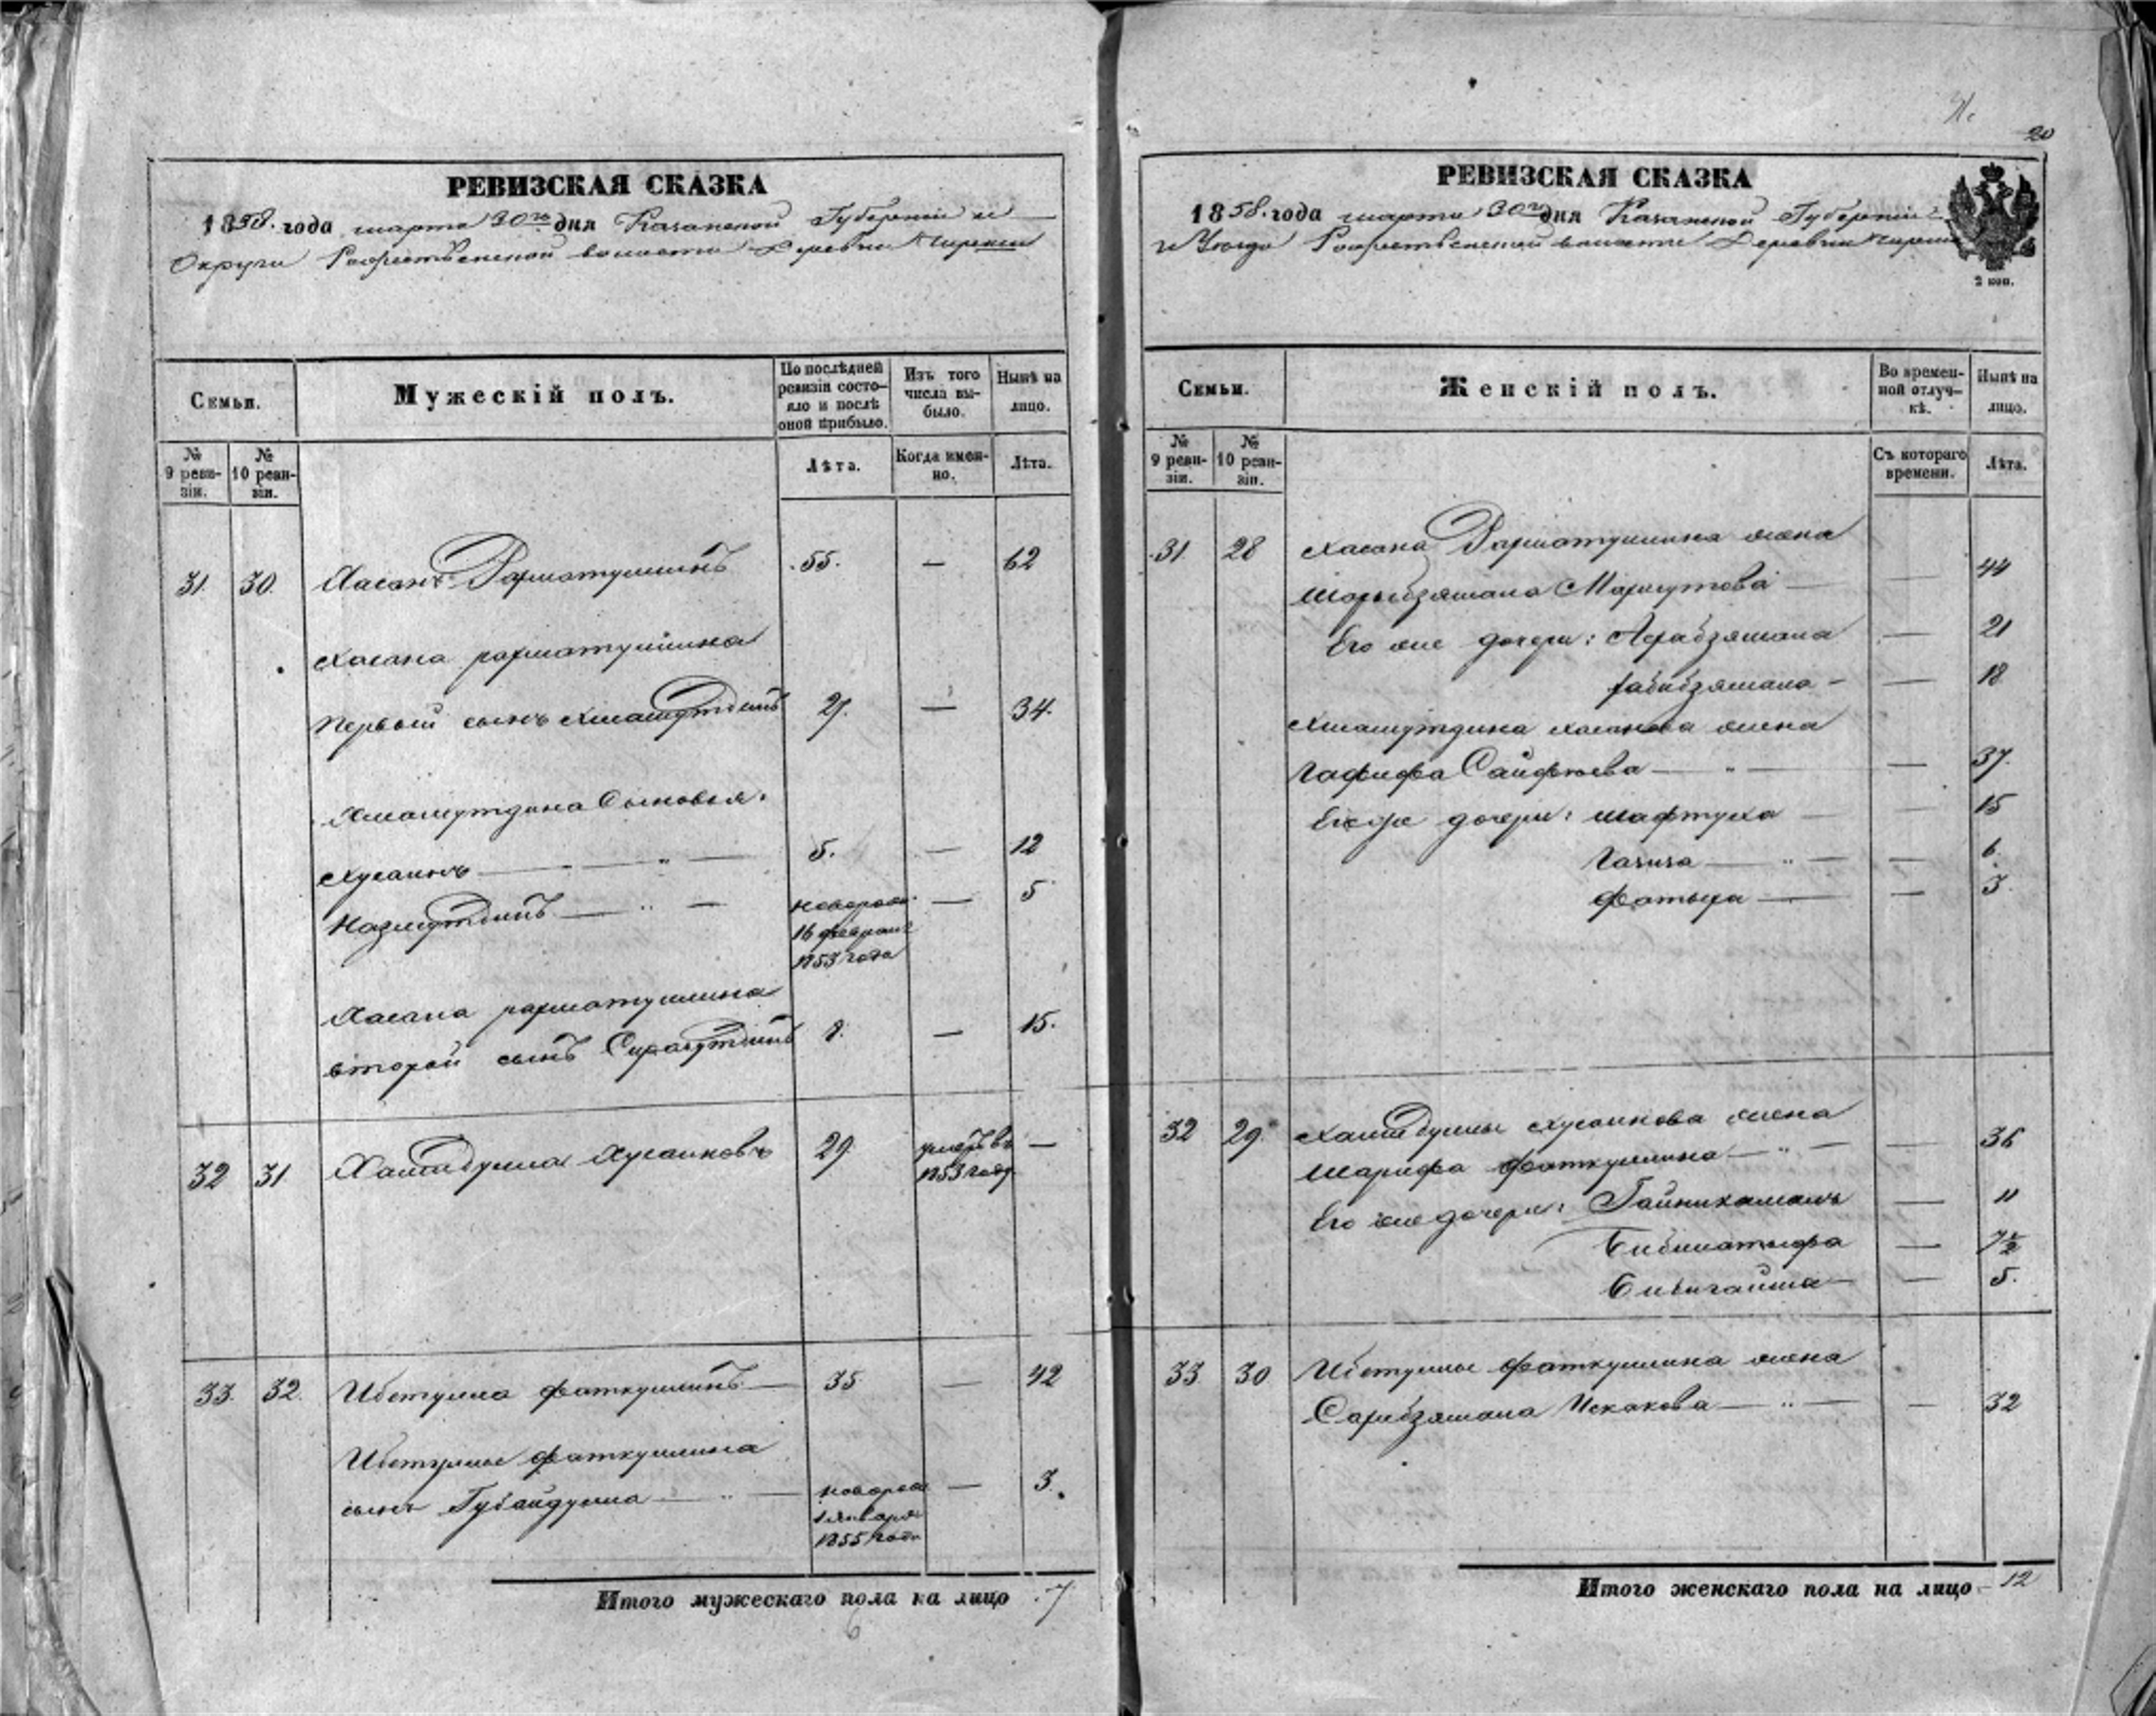 20
РЕВИЗСКАЯ СКАЗКА
1858. года марта 30го дня Казанской Губерніи и
Округи волости Деревни
Семьи.
Мужескій полъ.
По послѣдней ревизіи состо-
яло и послѣ оной прибыло.
Изъ того числа вы-
было.
Нынѣ на лицо.
№ 9 реви-
зіи.
№ 10 реви-
зіи.
Лѣта.
Когда имен-
но.
Лѣта.
31. 30. Хасанъ Рахматуллинъ 55. — 62
Хасана рахматуллина
первый сынъ Хисамутдинъ 27. — 34.
Хисамутдина Сыновья:
Хусаинъ — " — 5. — 12
Назмутдинъ — " — новорож. — 5
16 февраля
1853 года
Хасана рахматуллина
второй сынъ Сиразутдинъ 8. — 15.
32 31 Хабибулла Хусаиновъ 29. умеръ въ —
1853 году
33. 32. Ибетулла фаткуллинъ — 35 — 42
Ибетуллы фаткуллина
сынъ Губайдулла — " — новорож — 3.
1 января
1855 года
Итого мужескаго пола на лицо 7
6
РЕВИЗСКАЯ СКАЗКА
1858. года марта 30го дня Казанской Губерніи
и Уезда волости Деревни
2 коп.
Семьи.
Женскій полъ.
Во времен-
ной отлуч-
кѣ.
Нынѣ на лицо.
№ 9 реви-
зіи.
№ 10 реви-
зіи.
Съ котораго времени.
Лѣта.
31 28 Хасана Рахматуллина жена
Махмутова — — 44
Его же дочери: — 21
Хабибзямала — — 18
Хисамутдина хасанова жена
Гафифа Сайфѣева — " — — 37.
Его же дочери: — — 15
Газиза — " — — 6.
фатыха — — 3.
32 29 Хабибуллы Хусаинова жена
Шарифа фаткуллина — " — — 36
Его же дочери: Гайникамалъ — 11
Бибилатыфа — 7½
Бибигайша — — 5.
33 30 Ибетуллы фаткуллина жена
Сарбизямала Искакова — " — — 32
Итого женскаго пола на лицо — 12